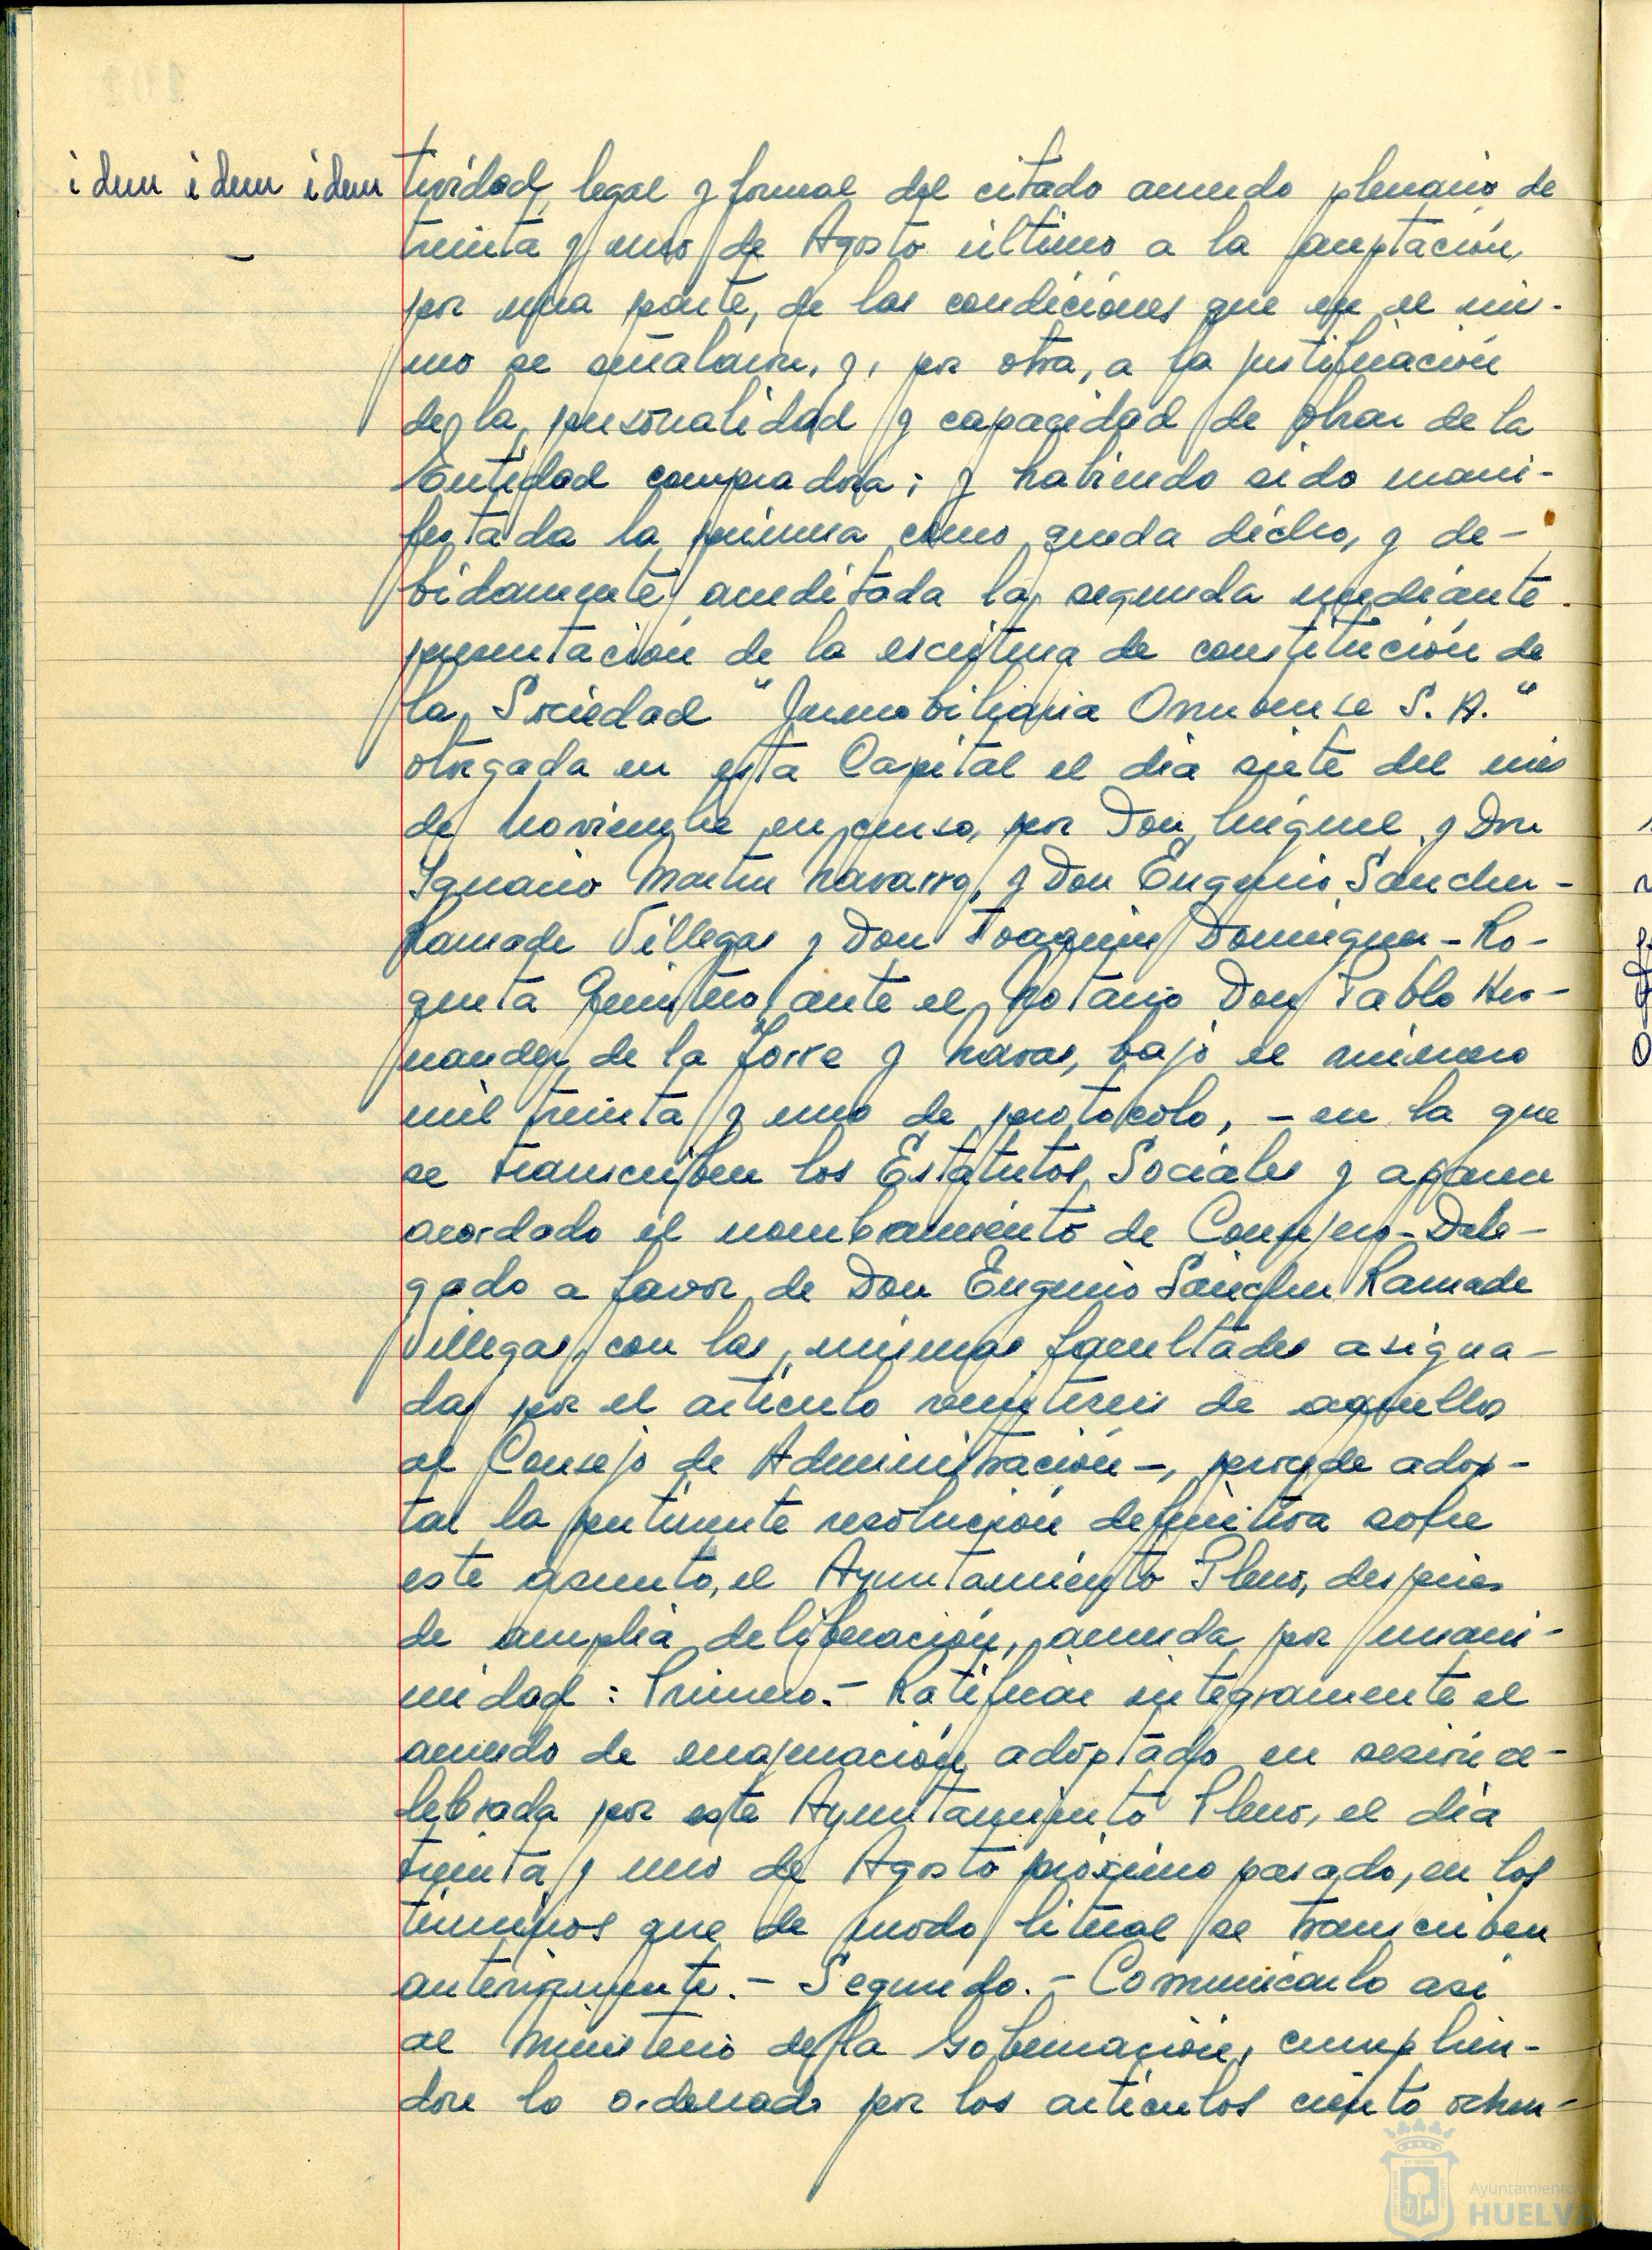 idem idem idem
tividad, legal y formal del citado acuerdo plenario de
treinta y uno de Agosto último a la aceptación,
por una parte, de las condiciones que en el mis-
mo se señalaron, y, por otra, a la justificación
de la personalidad y capacidad de obrar de la
Entidad compradora; y habiendo sido mani-
festada la primera como queda dicho, y de-
bidamente acreditada la segunda mediante
presentación de la escritura de constitución de
la Sociedad "Inmobiliaria Onubense S. A."
otorgada en esta Capital el día siete del mes
de Noviembre en curso, por Don Miguel y Don
Ignacio Martin Navarro, y Don Eugenio Sanchez-
Ramade Villegas y Don Joaquin Dominguez-Ro-
queta Quintero, ante el Notario Don Pablo Her-
nandez de la Torre y Navas, bajo el número
mil treinta y uno de protocolo, - en la que
se transcriben los Estatutos Sociales y aparece
acordado el nombramiento de Consejero-Dele-
gado a favor de Don Eugenio Sánchez Ramade
Villegas, con las mismas facultades asigna-
das por el artículo veintiseis de aquellos
al Consejo de Administración -, procede adop-
tar la pertinente resolución definitiva sobre
este asunto, el Ayuntamiento Pleno, despues
de amplia deliberación, acuerda por unani-
midad: Primero.- Ratificar integramente el
acuerdo de enajenación adoptado en sesión ce-
lebrada por este Ayuntamiento Pleno, el día
treinta y uno de Agosto próximo pasado, en los
términos que de modo literal se transcriben
anteriormente.- Segundo.- Comunicarlo asi
al Ministerio de la Gobernación, cumplien-
dose lo ordenado por los artículos ciento ochen-
Ayuntamiento de
HUELVA